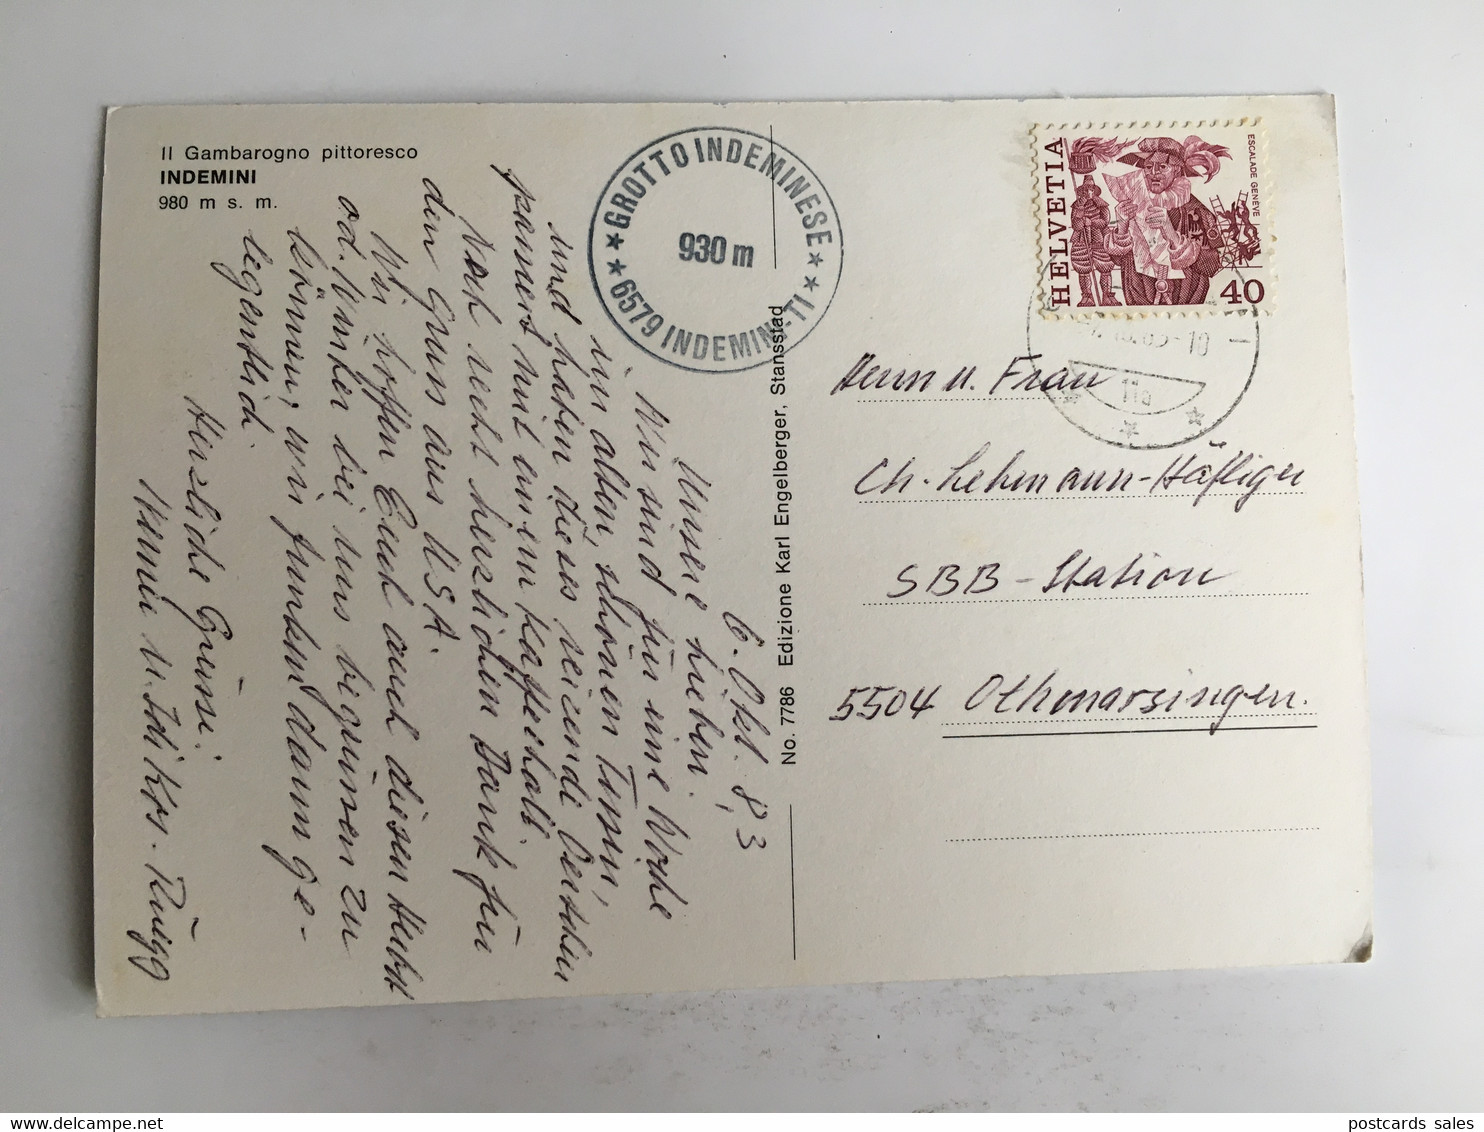 Il Gambarogno pittoresco
INDEMINI
980 m s. m.
GROTTO INDEMINESE
930 m
6579 INDEMINI-TI
HELVETIA
ESCALADE GENÈVE
40
-10
11a
No. 7786 Edizione Karl Engelberger, Stansstad
6. Okt. 83
Unsere Lieben.
Wir sind für eine Woche
im alten, schönen Tessin,
und haben dieses reizende Oertchen
passiert mit einem Kaffeehalt.
Noch recht herzlichen Dank für
den Gruss aus USA.
Wir hoffen Euch auch diesen Herbst
od. Winter bei uns begrüssen zu
können, wir funken dann ge-
legentlich.
Herzliche Grüsse.
Werner u. Idi Krs. Rüegg
Herrn u. Frau
Ch. Lehmann-Häfliger
SBB-Station
5504 Othmarsingen.
www.delcampe.net
postcards sales